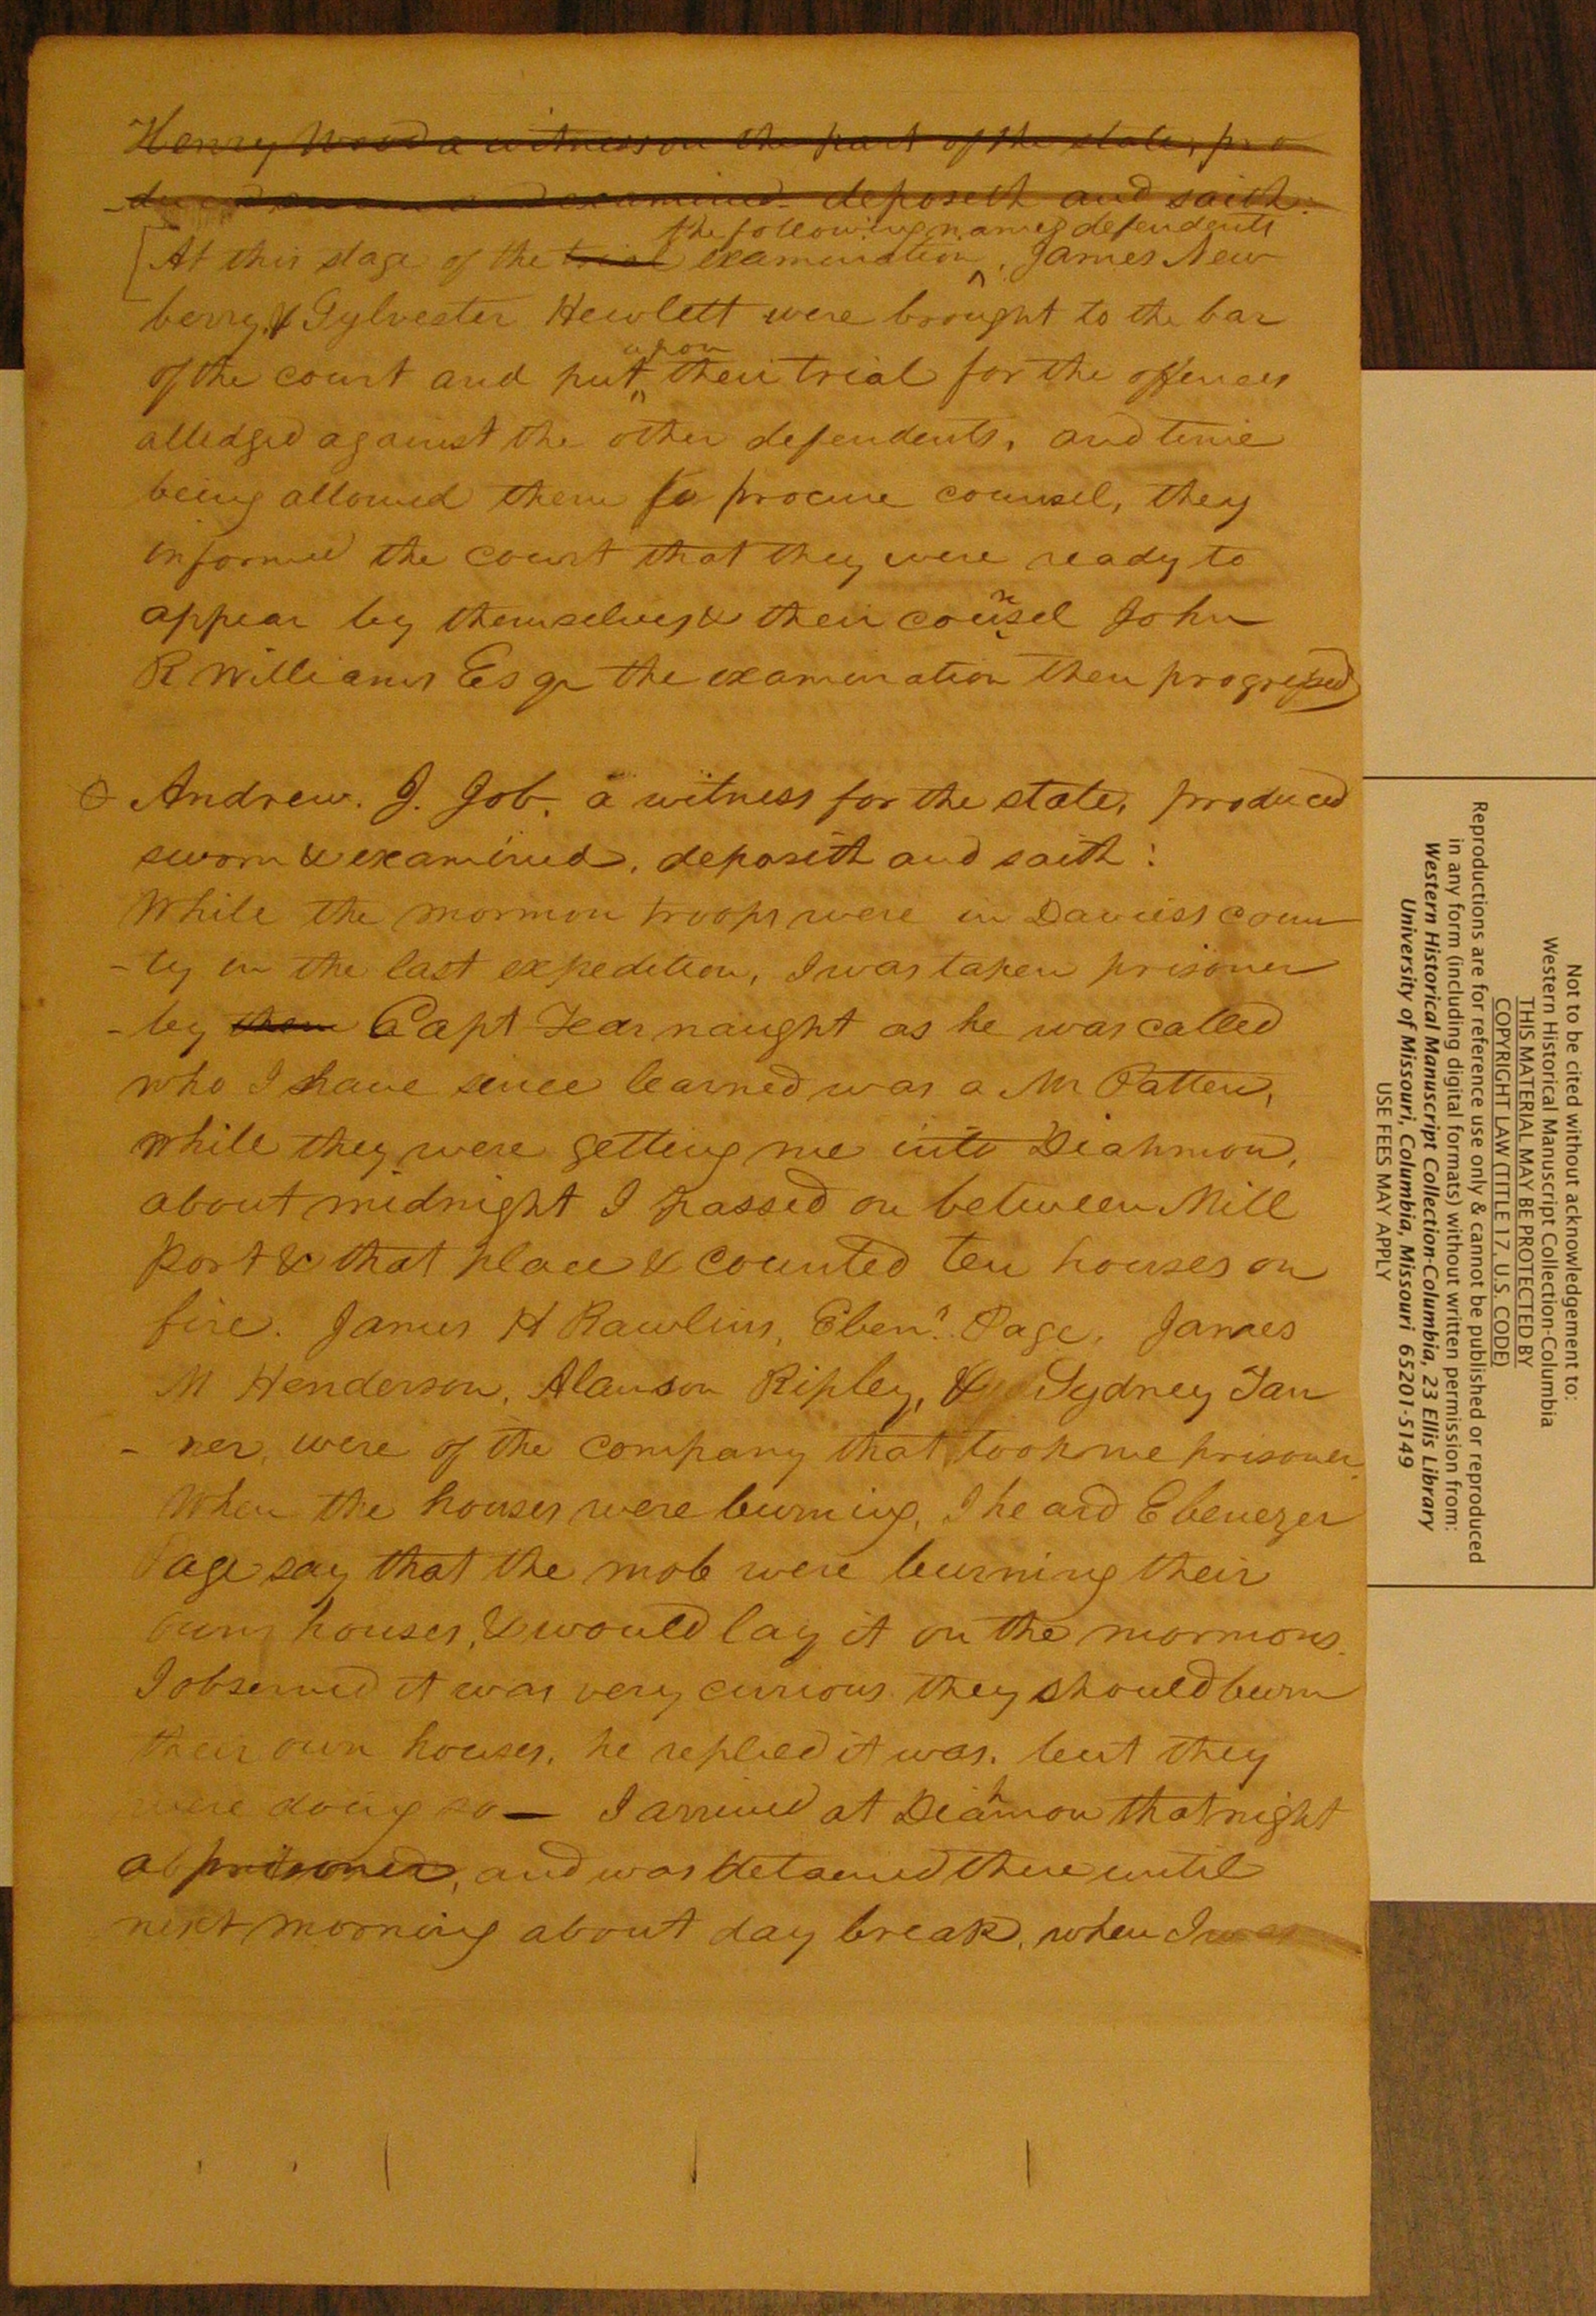 Henry Wood a witness on the part of the state, pro
-duced sworn and examined deposeth and saith.
the following named defendents
[At this stage of the trial examination ^, James New
berry, & Sylvester Hewlett were brought to the bar
upon
of the court and put ^ their trial for the offences
alledged against the other defendents, and time
being allowed them to procure counsel, they
informed the court that they were ready to
appear by themselves & their counsel John
R Williams Esqr the examination then progressed)
Andrew. J. Job. a witness for the state, produced
sworn & examined, deposith and saith:
While the mormon troops were in Daviess coun
-ty in the last expedition, I was taken prisoner
-by them Capt Fearnaught as he was called
who I have since learned was a Mr Patten,
while they were getting me into Diahmon,
about midnight I passed on between Mill
port & that place & counted ten houses on
fire. James H Rawlins, Ebenr. Page, James
M Henderson, Alanson Ripley, & Sydney Tan
-ner, were of the company that took me prisoner.
When the houses were burning, I heard Ebenezer
Page say that the mob were burning their
own houses, & would lay it on the mormons.
I observed it was very curious they should burn
their own houses, he replied it was, but they
were doing so— I arrived at Diahmon that night
a prisoner, and was detained there until
next morning about day break, when I was
Not to be cited without acknowledgement to:
Western Historical Manuscript Collection-Columbia
THIS MATERIAL MAY BE PROTECTED BY
COPYRIGHT LAW (TITLE 17, U.S. CODE)
Reproductions are for reference use only & cannot be published or reproduced
in any form (including digital formats) without written permission from:
Western Historical Manuscript Collection-Columbia, 23 Ellis Library
University of Missouri, Columbia, Missouri 65201-5149
USE FEES MAY APPLY